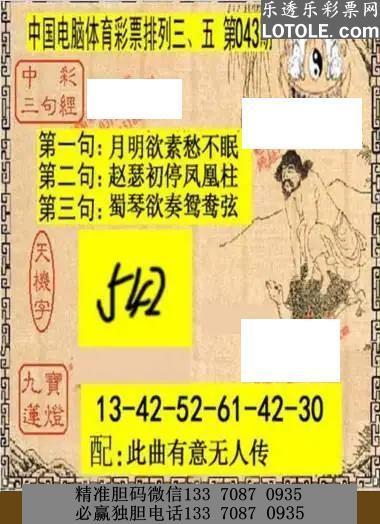 乐透乐彩票网
LOTOLE.COM
中国电脑体育彩票排列三、五 第043期
中彩
三句經
第一句：月明欲素愁不眠
第二句：赵瑟初停凤凰柱
第三句：蜀琴欲奏鸳鸯弦
天機字
542
九寶
蓮燈
13-42-52-61-42-30
配：此曲有意无人传
精准胆码微信133 7087 0935
必赢独胆电话133 7087 0935